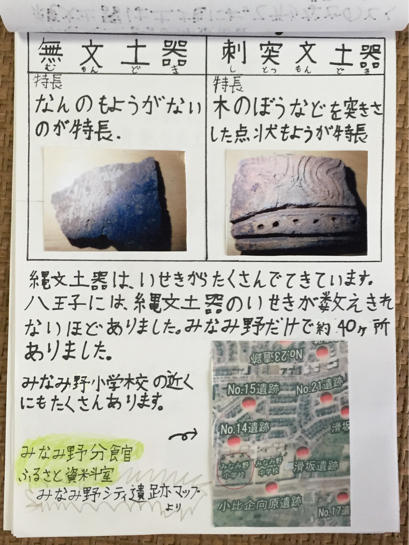 無文土器
む もん ど き
特長
なんのもようがない
のが特長.
刺突文土器
し とつ もん ど き
特長
木のぼうなどを突きさ
した点状もようが特長
縄文土器は、いせきがたくさんでてきています。
八王子には、縄文土器のいせきが数えきれ
ないほどありました。みなみ野だけで約40ヶ所
ありました。
みなみ野小学校の近く
にもたくさんあります。
みなみ野分館
ふるさと資料室
みなみ野シティ遺跡マップ
より
No.23遺跡
No.15遺跡
No.21遺跡
No.14遺跡
滑坂
みなみ野
小学校
みなみ野
中学校
滑坂遺跡
小比企向原遺跡
No.17遺